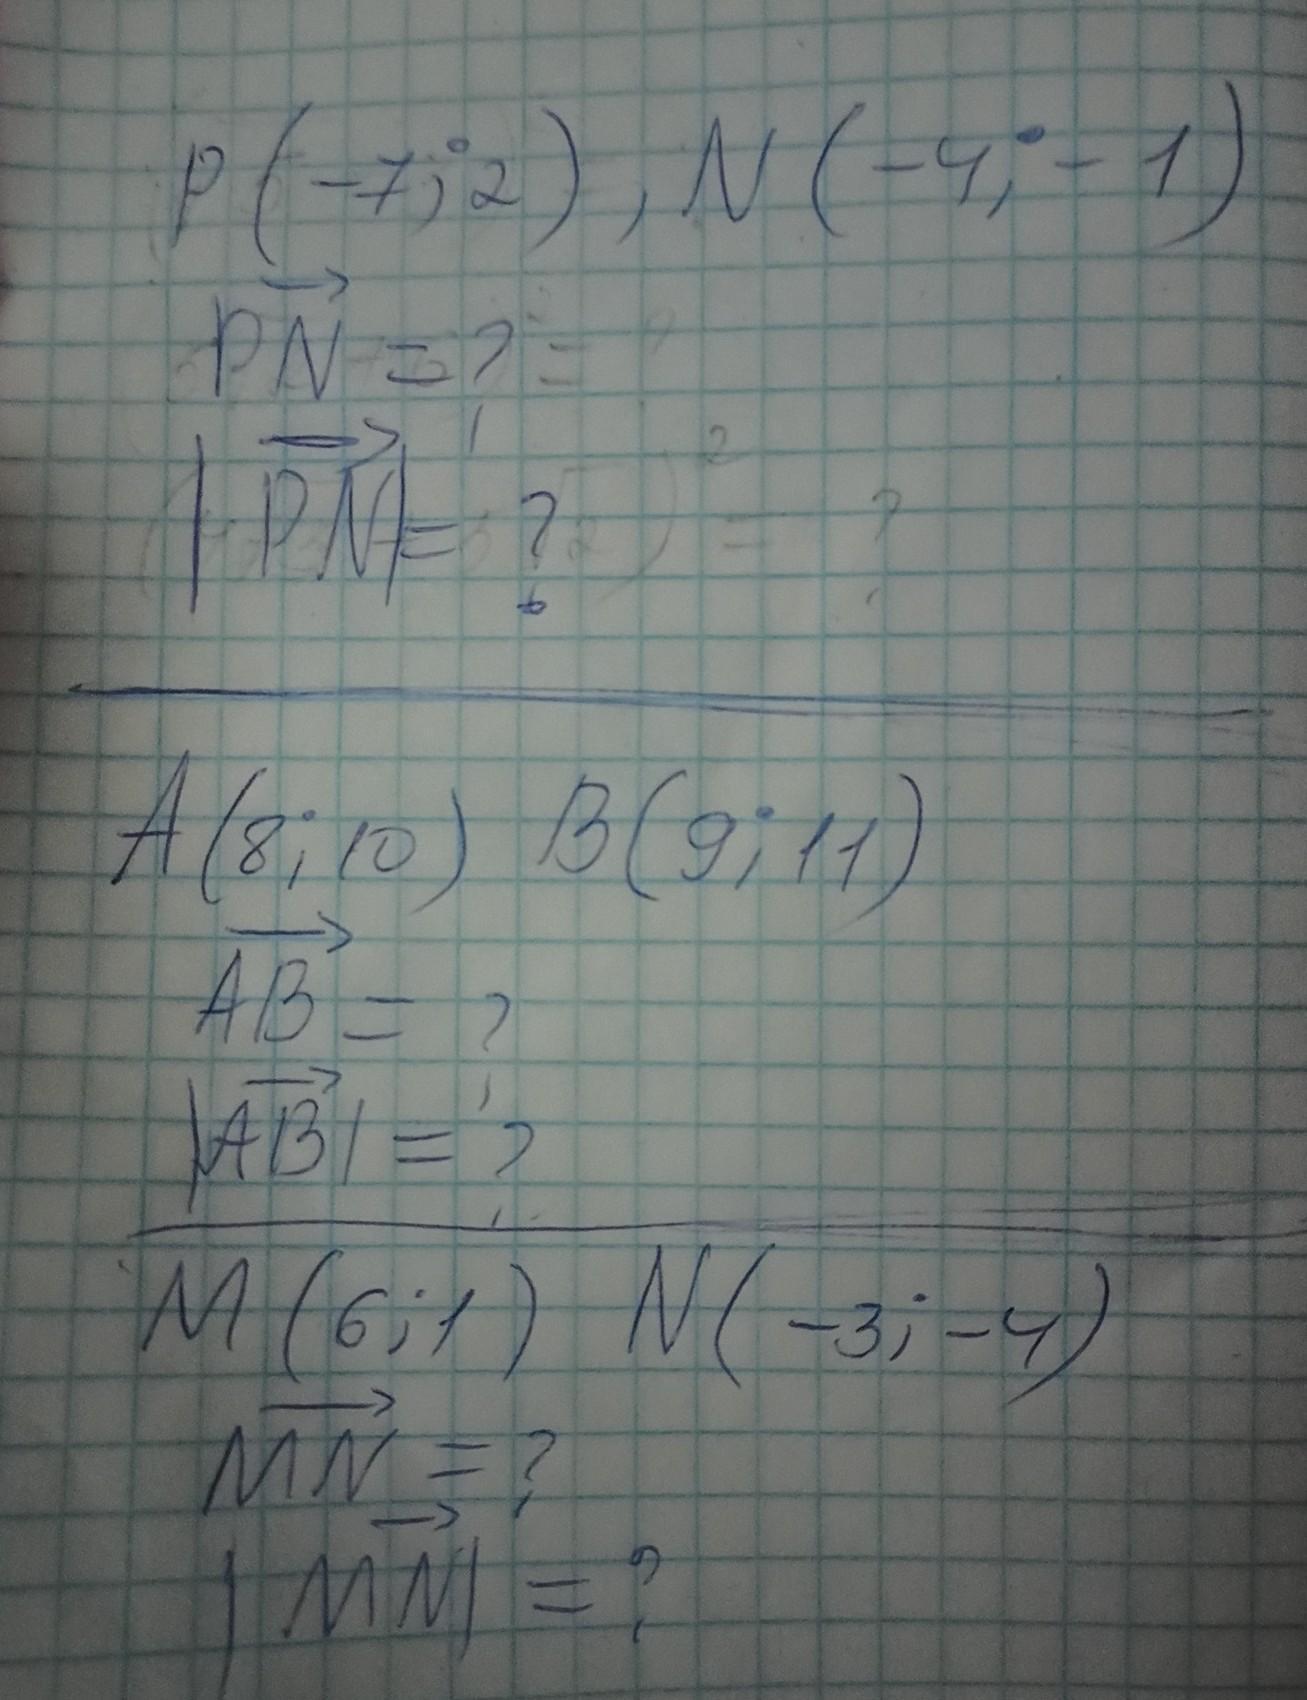 P(-7;2), N(-4;-1)
PN = ?
|PN| = ?
A(8;10) B(9;11)
AB = ?
|AB| = ?
M(6;1) N(-3;-4)
MN = ?
|MN| = ?